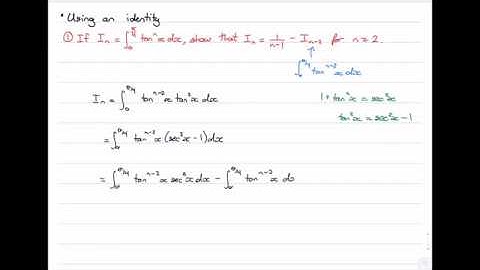 • Using an identity
① If Iₙ = ∫₀^{π/4} tanⁿx dx, show that Iₙ = 1/(n-1) - Iₙ₋₂ for n ≥ 2.
↑
∫₀^{π/4} tanⁿ⁻²x dx
Iₙ = ∫₀^{π/4} tanⁿ⁻²x tan²x dx
1 + tan²x = sec²x
tan²x = sec²x - 1
= ∫₀^{π/4} tanⁿ⁻²x (sec²x - 1) dx
= ∫₀^{π/4} tanⁿ⁻²x sec²x dx - ∫₀^{π/4} tanⁿ⁻²x d